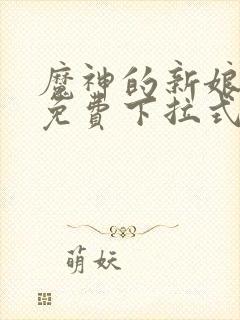 魔神的新娘
免費下拉式
萌妖